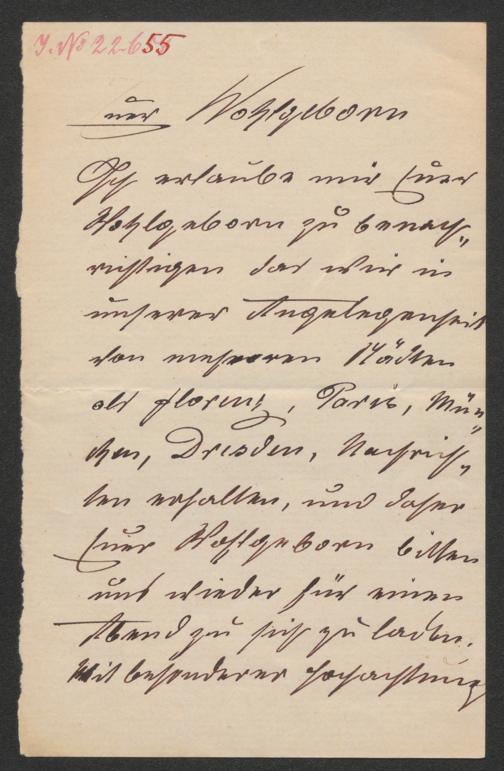 J. № 22655
Euer Wohlgeborn
Ich erlaube mir Euer
Wohlgeborn zu benach„
richtigen das wir in
unserer Angelegenheit
von mehreren Städten
als Florenz, Paris, Mün„
chen, Dresden, Nachrich„
ten erhalten, und daher
Euer Wohlgeborn bitten
uns wieder für einen
Abend zu sich zu laden.
Mit besonderer Hochachtung